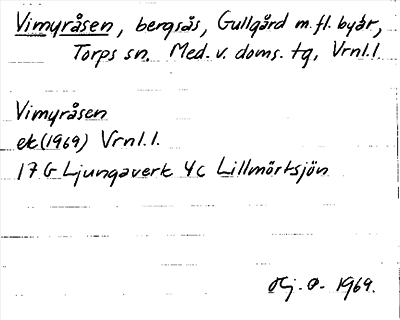 Vimyråsen, bergsås, Gullgård m.fl. byar,
Torps sn. Med. v. doms. tg, Vrnl.l.
Vimyråsen
ek (1969) Vrnl.l.
17 G Ljungaverk 4c Lillmörtsjön
Hj. O. 1969.